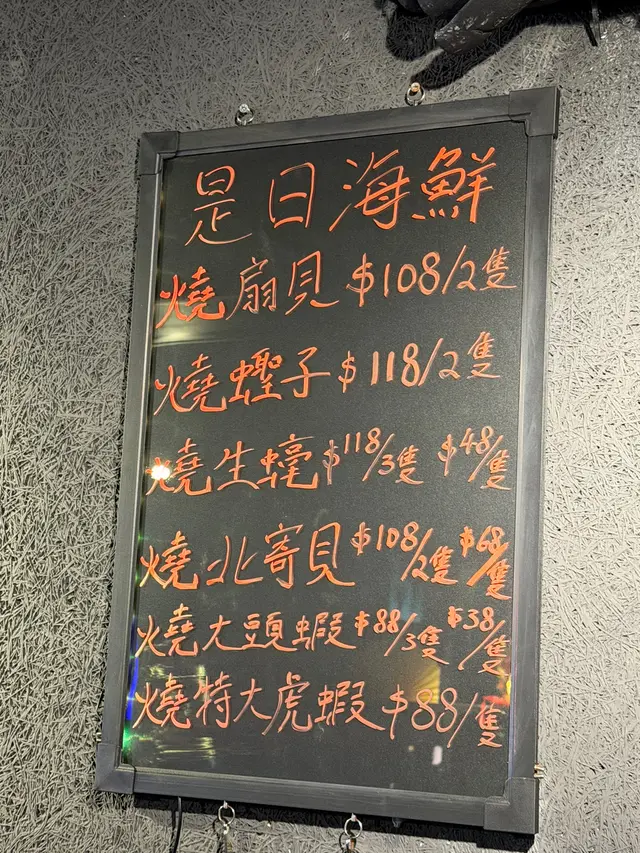 是日海鮮
燒扇貝 $108/2隻
燒蟶子 $118/2隻
燒生蠔 $118/3隻 $48/隻
燒北寄貝 $108/2隻 $68/隻
燒大頭蝦 $88/3隻 $38/隻
燒特大虎蝦 $88/隻